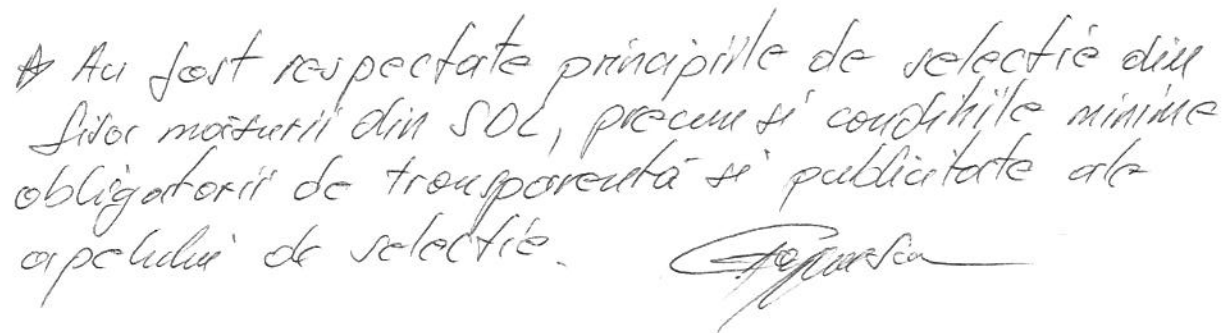 * Au fost respectate principiile de selectie din
fisa măsurii din SDL, precum si conditiile minime
obligatorii de transparentă si publicitate ale
apelului de selectie.